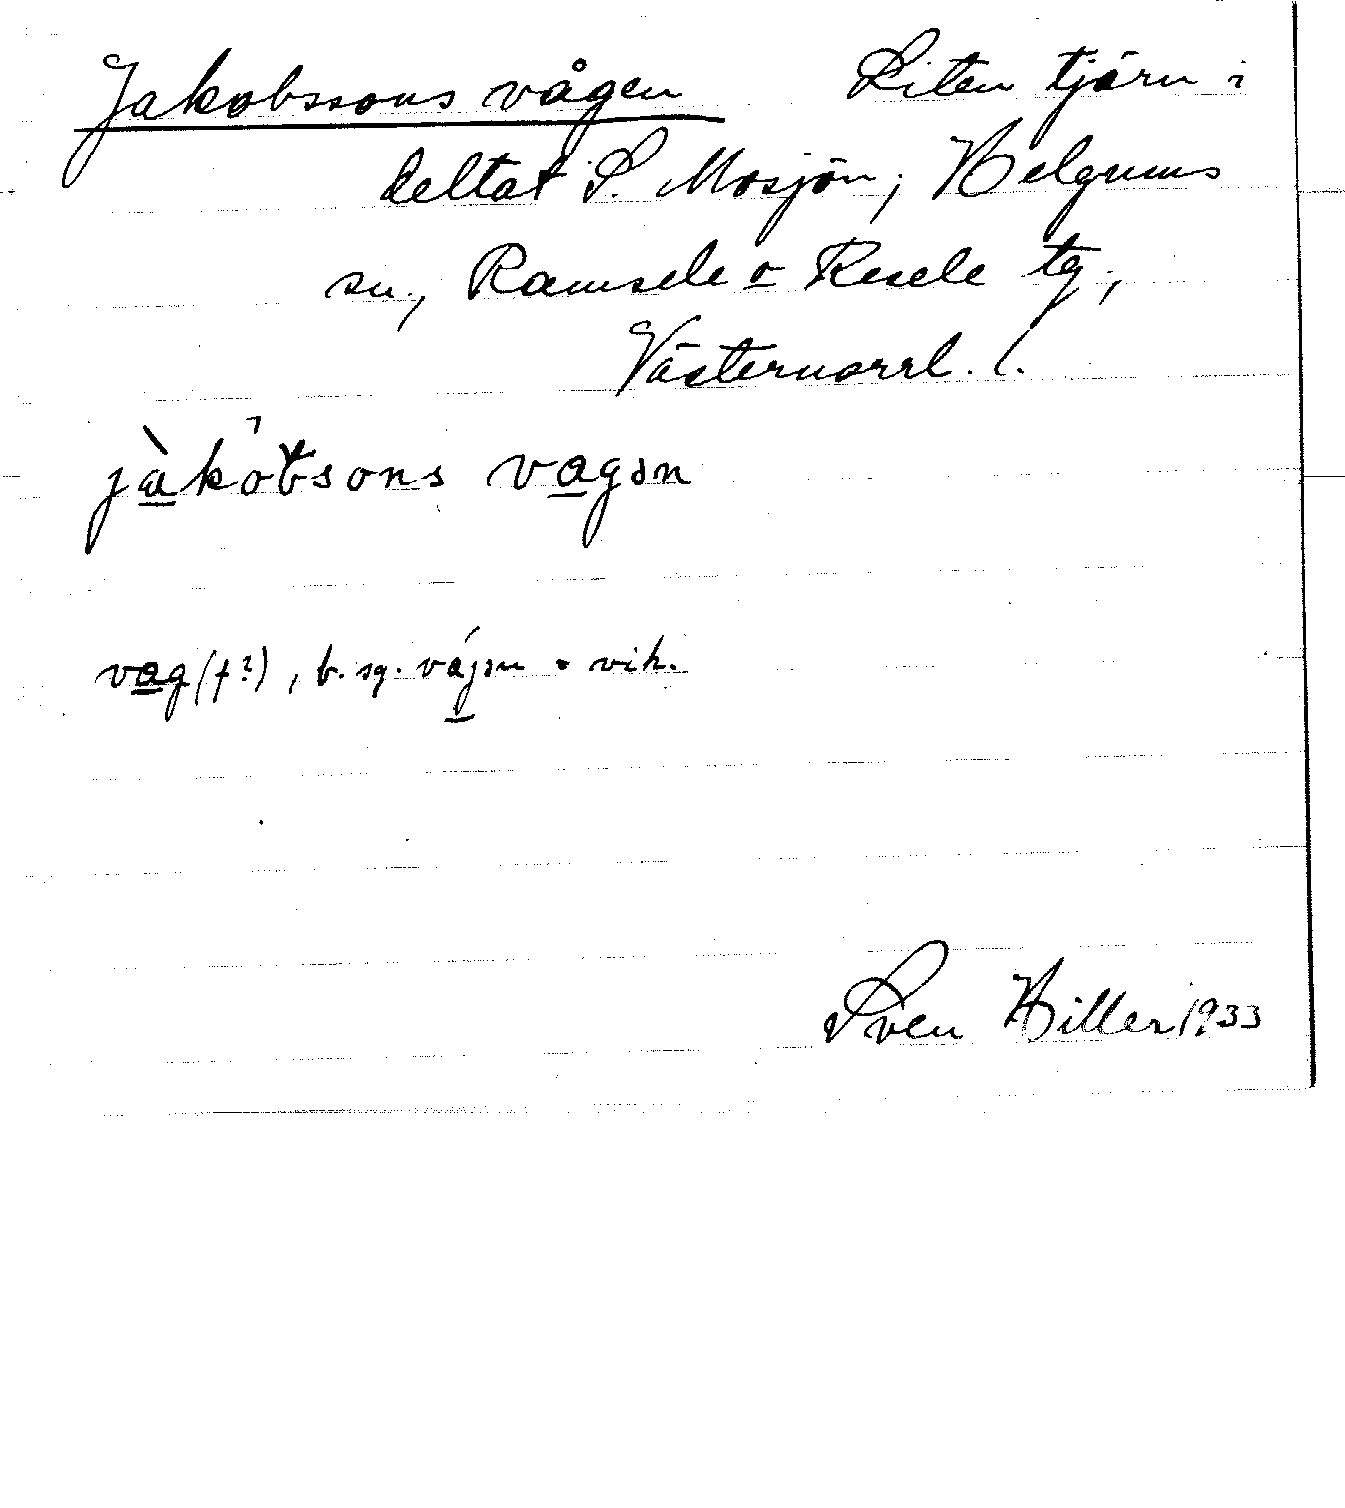 Jakobssons vågen Liten tjärn i
deltat S. Mosjön, Helgums
sn., Ramsele o Resele tg,
Västernorrl. l.
jàkobsons vagən
vag (f?), b. sg. vájən = vik.
Sven Hiller 1933